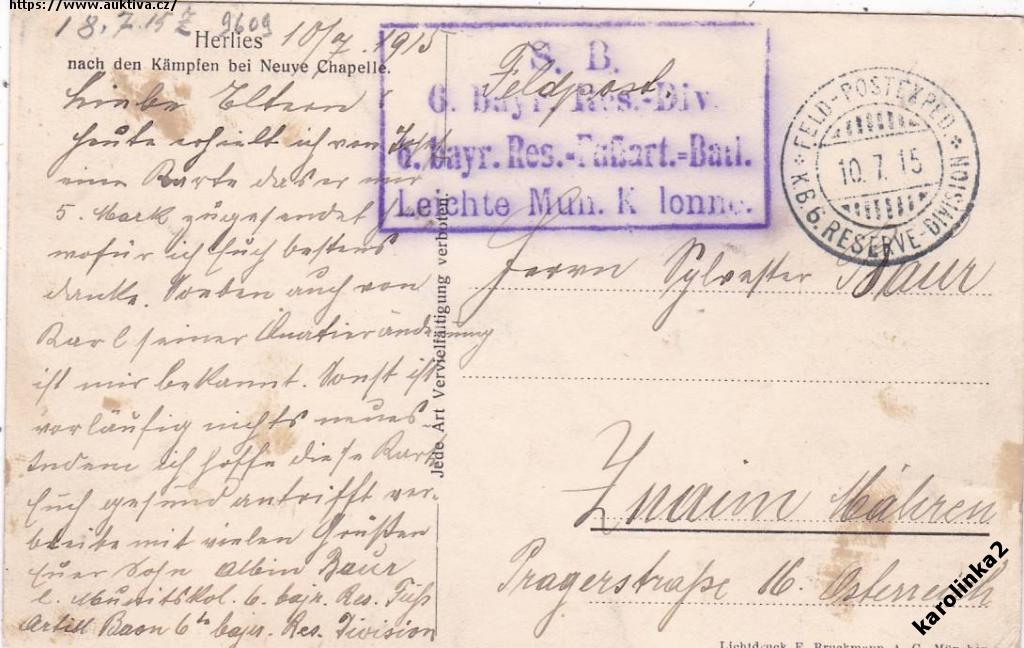 https://www.auktiva.cz/
18.7.15 9609
Herlies 10/7.1915
nach den Kämpfen bei Neuve Chapelle.
Liebe Eltern!
Heute erhielt ich von Josef
eine Karte das er mir
5. Mark zugesendet
wofür ich Euch bestens
danke. Soeben auch von
Karl seiner Quatieränderung
ist mir bekannt. Sonst ist
vorläufig nichts neues.
Indem ich hoffe diese Karte
Euch gesund antrifft ver-
bleibe mit vielen Grüßen
Euer Sohn Albin Baur
l. Munitskol 6. bayr. Res. Fuß
Artill Baon 6te bayr. Res. Division
Jede Art Vervielfältigung verboten.
S. B.
6. bayr. Res.-Div.
6. bayr. Res.-Fußart.=Batl.
Leichte Mun. K lonne.
Feldpost.
FELD-POSTEXPED.
10.7.15
* K.B.6.RESERVE-DIVISION *
Herrn Sylvester Baur
Znaim Mähren
Pragerstraße 16. Österreich
Lichtdruck F. Bruckmann A. G. München
karolinka2